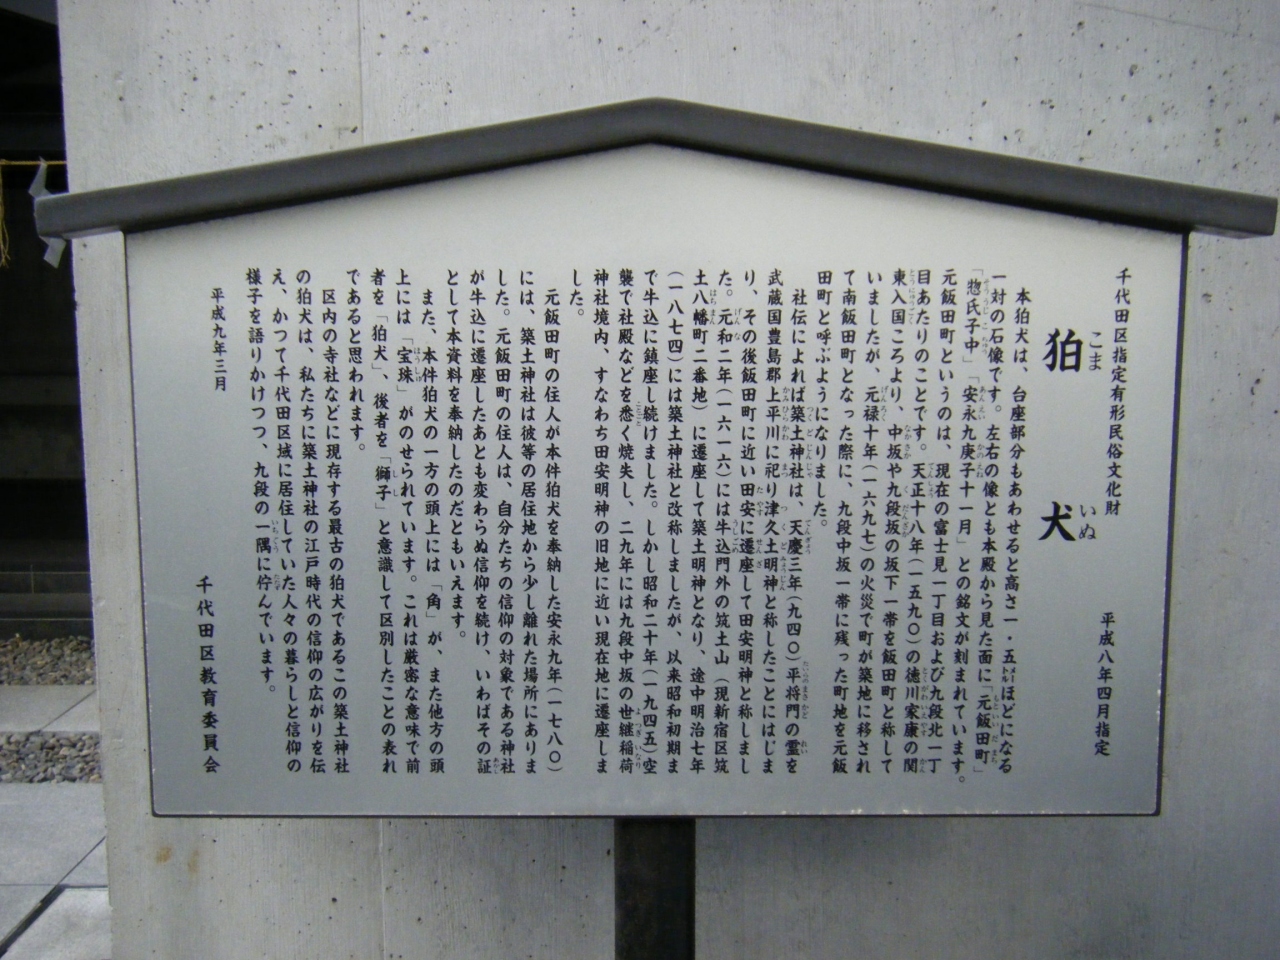 千代田区指定有形民俗文化財
平成八年四月指定
狛犬
こま
いぬ
本狛犬は、台座部分もあわせると高さ一・五㍍ほどになる
一対の石像です。左右の像とも本殿から見た面に「元飯田町」
「惣氏子中」「安永九庚子十一月」との銘文が刻まれています。
元飯田町というのは、現在の富士見一丁目および九段北一丁
目あたりのことです。天正十八年(一五九〇)の徳川家康の関
東入国ころより、中坂や九段坂の坂下一帯を飯田町と称して
いましたが、元禄十年(一六九七)の火災で町が築地に移され
て南飯田町となった際に、九段中坂一帯に残った町地を元飯
田町と呼ぶようになりました。
社伝によれば築土神社は、天慶三年(九四〇)平将門の霊を
武蔵国豊島郡上平川に祀り津久土明神と称したことにはじま
り、その後飯田町に近い田安に遷座して田安明神と称しまし
た。元和二年(一六一六)には牛込門外の筑土山(現新宿区筑
土八幡町二番地)に遷座して築土明神となり、途中明治七年
(一八七四)には築土神社と改称しましたが、以来昭和初期ま
で牛込に鎮座し続けました。しかし昭和二十年(一九四五)空
襲で社殿などを悉く焼失し、二九年には九段中坂の世継稲荷
神社境内、すなわち田安明神の旧地に近い現在地に遷座しま
した。
元飯田町の住人が本件狛犬を奉納した安永九年(一七八〇)
には、築土神社は彼等の居住地から少し離れた場所にありま
した。元飯田町の住人は、自分たちの信仰の対象である神社
が牛込に遷座したあとも変わらぬ信仰を続け、いわばその証
として本資料を奉納したのだともいえます。
また、本件狛犬の一方の頭上には「角」が、また他方の頭
上には「宝珠」がのせられています。これは厳密な意味で前
者を「狛犬」、後者を「獅子」と意識して区別したことの表れ
であると思われます。
区内の寺社などに現存する最古の狛犬であるこの築土神社
の狛犬は、私たちに築土神社の江戸時代の信仰の広がりを伝
え、かつて千代田区域に居住していた人々の暮らしと信仰の
様子を語りかけつつ、九段の一隅に佇んでいます。
平成九年三月
千代田区教育委員会